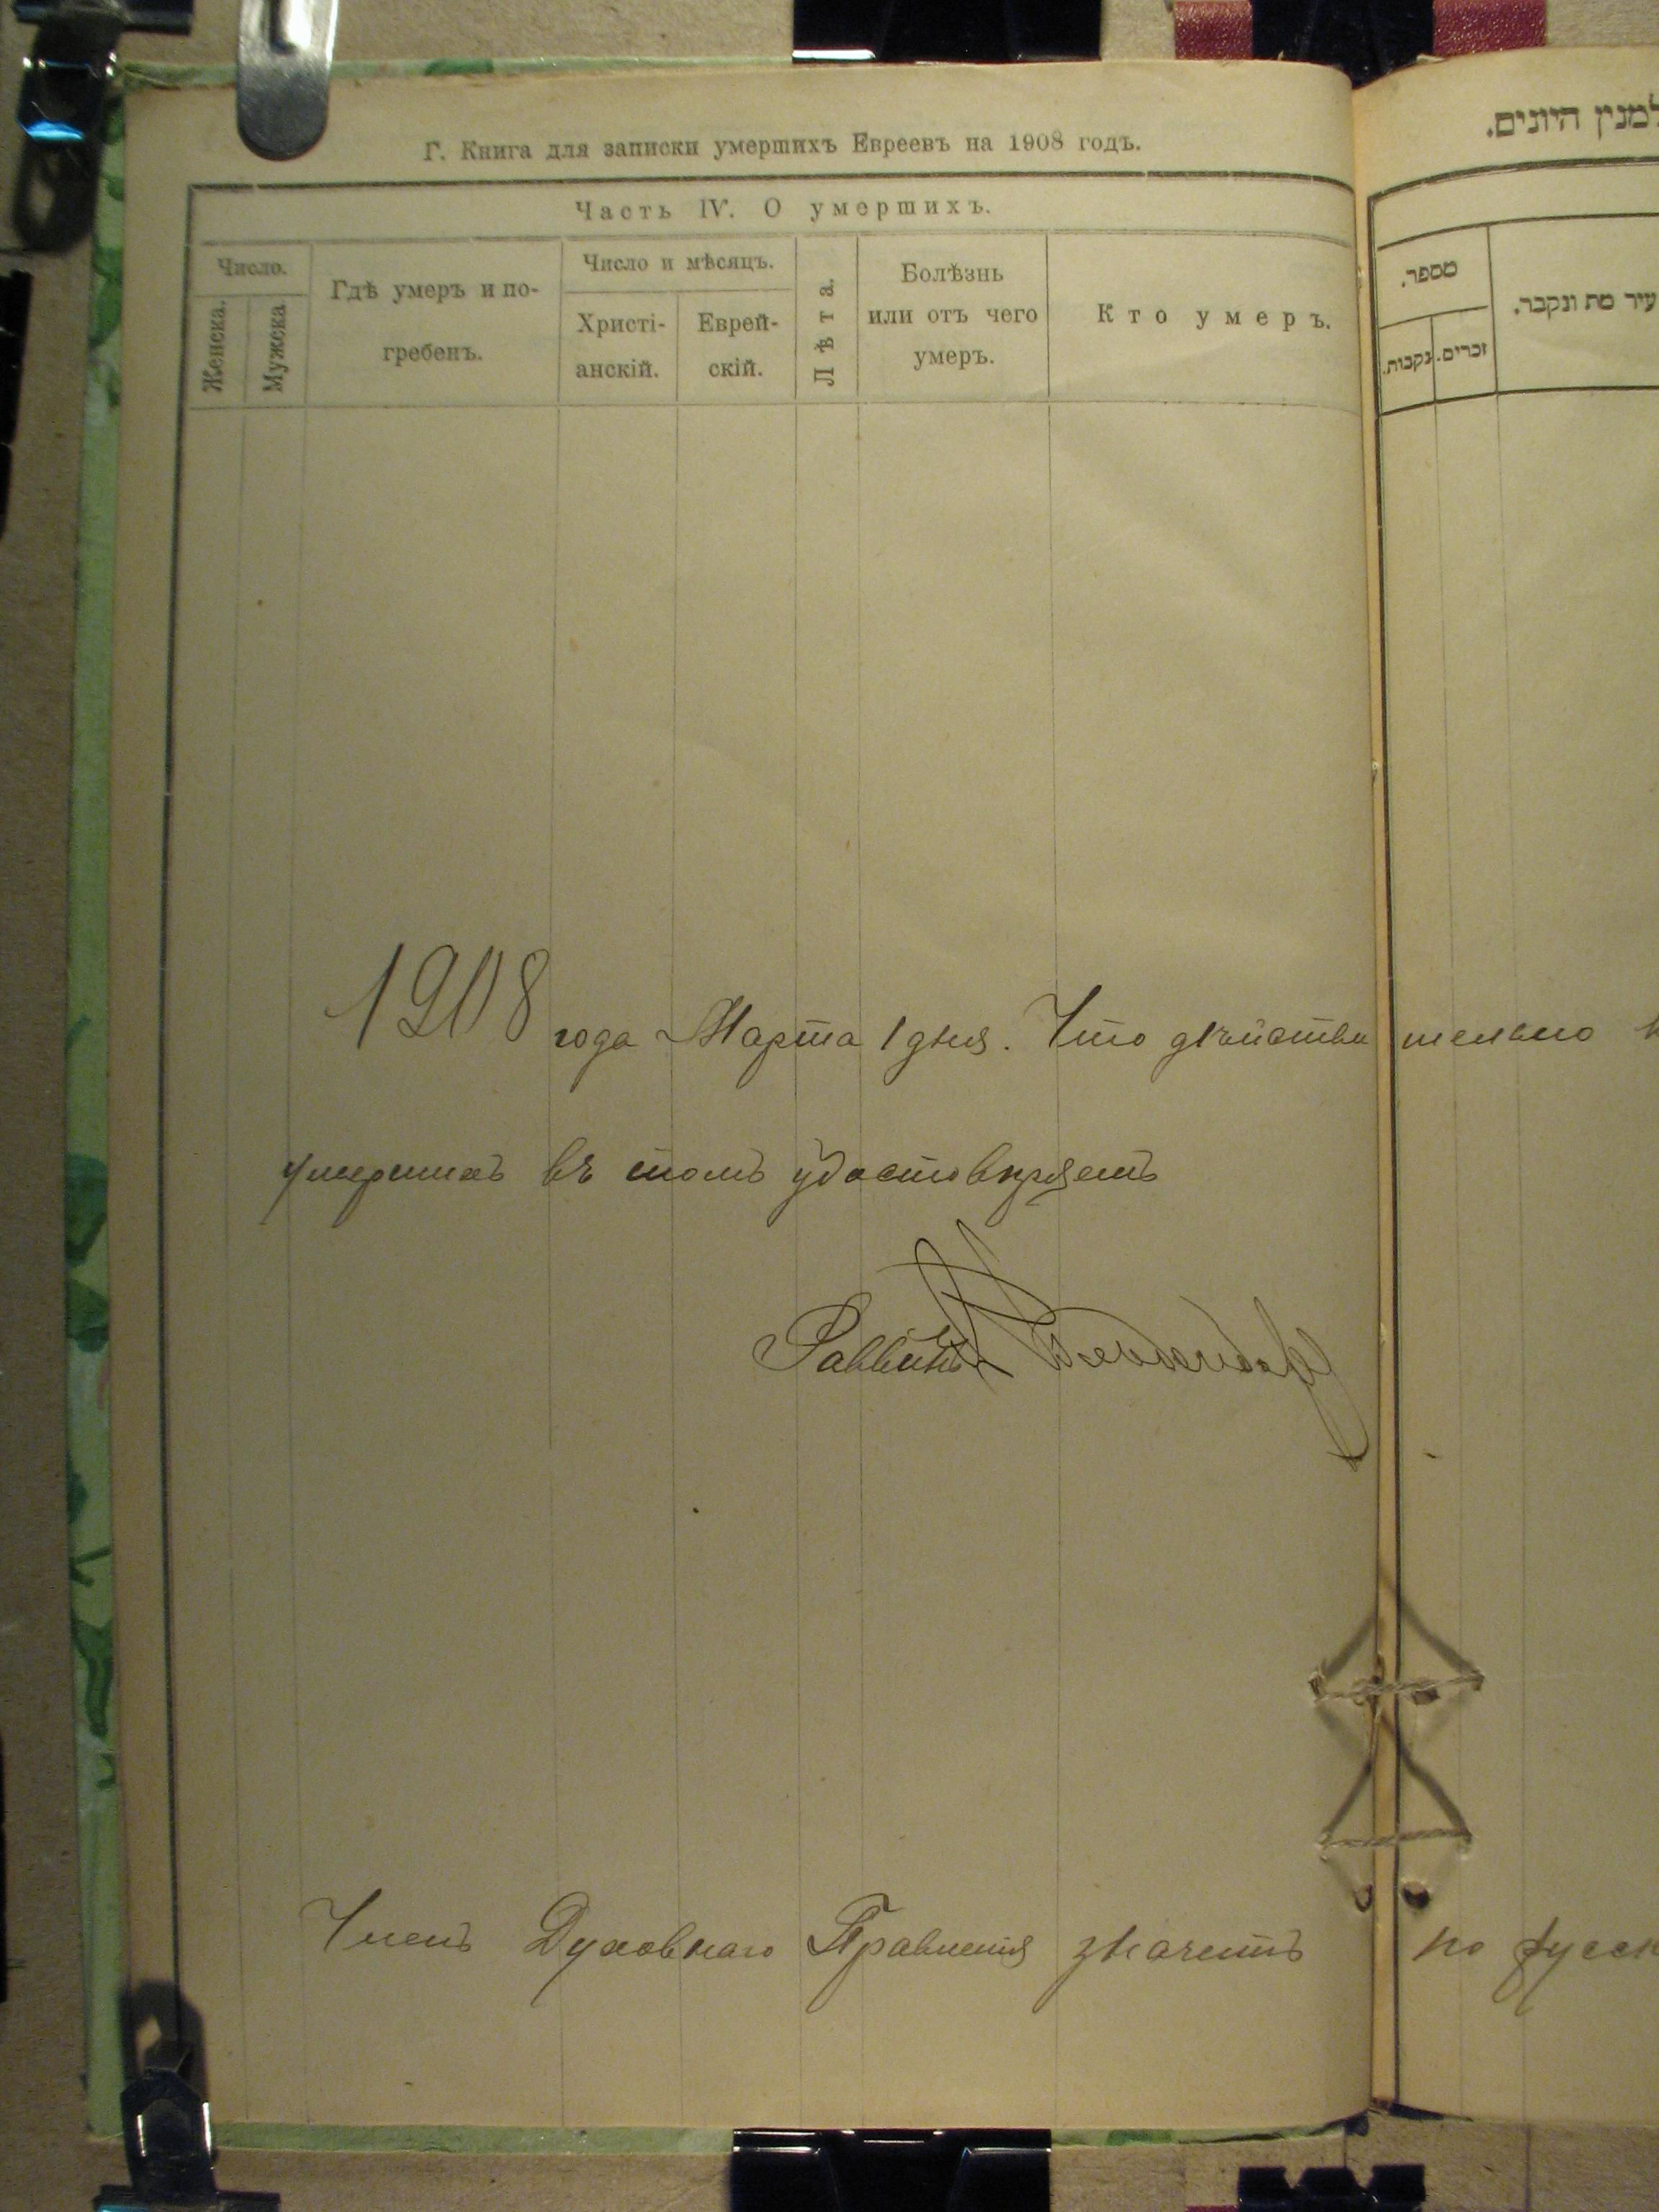 Г. Книга для записки умершихъ Евреевъ на 1908 годъ.
Часть IV. О умершихъ.
Число.
Женска.
Мужска
Гдѣ умеръ и по-
гребенъ.
Число и мѣсяцъ.
Христі-
анскій.
Еврей-
скій.
Лѣта.
Болѣзнь
или отъ чего
умеръ.
Кто умеръ.
1908 года Марта 1 дня. Что дѣйстви тельно
умершихъ въ томъ удостовѣряетъ
Раввинъ
Членъ Духовнаго Правленія значитъ по русск
למנין היונים.
מספר.
נקבות.
זכרים.
עיר מת ונקבר.